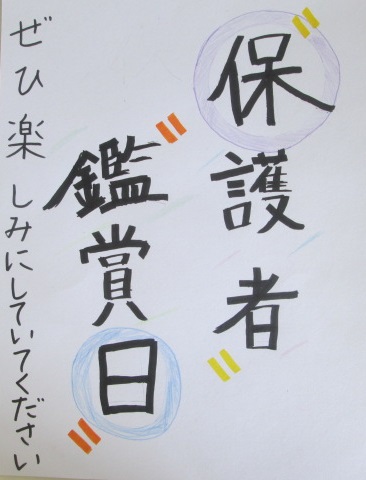 保護者
鑑賞日
ぜひ楽しみにしていてください